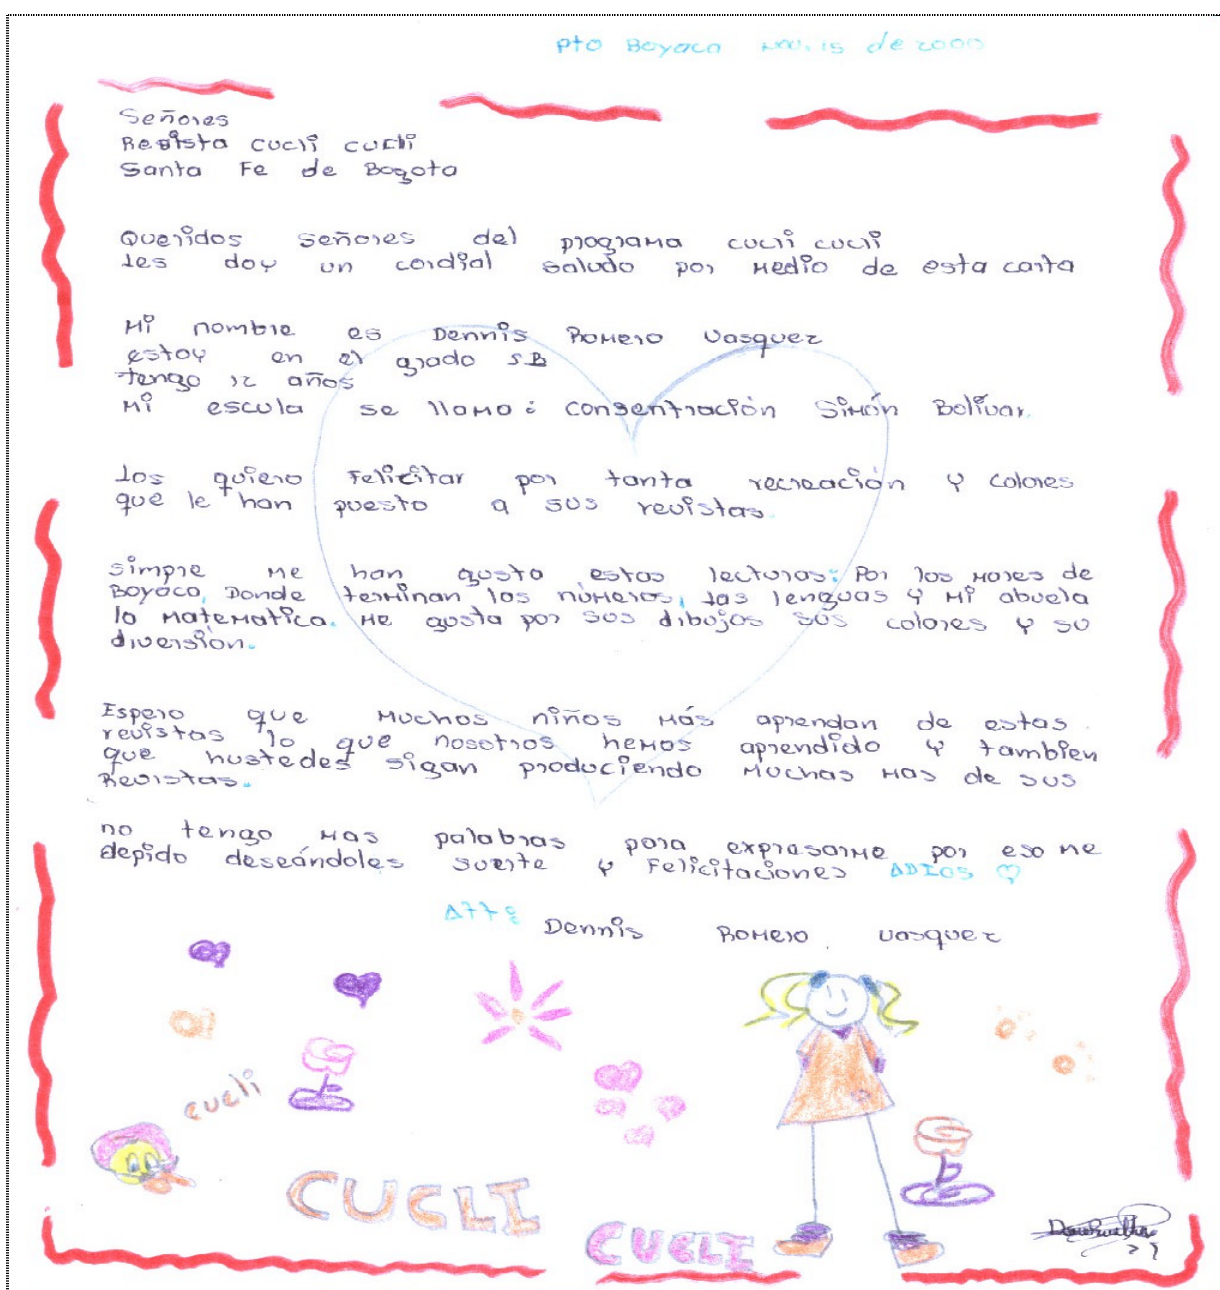 Pto Boyaca Nov. 15 de 2000
Señores
Revista cucli cucli
Santa Fe de Bogota
Queridos señores del programa cucli cucli
les doy un cordial saludo por medio de esta carta
Mi nombre es Dennis Romero Vasquez
estoy en el grado 5B
tengo 12 años
Mi escula se llama: consentración Simón Bolívar.
los quiero Felicitar por tanta recreación y colores
que le han puesto a sus revistas.
simpre me han gusto estas lecturas: Por los mares de
Boyáco, Donde terminan los números, las lenguas y mi abuela
la matematica. me gusta por sus dibujos sus colores y su
diversión.
Espero que muchos niños más aprendan de estas
revistas lo que nosotros hemos aprendido y tambien
que hustedes sigan produciendo muchas mas de sus
Revistas.
no tengo mas palabras para expresarme por eso me
depido deseándoles suerte y Felicitaciones ADIOS
ATT:
Dennis Romero Vasquez
cucli
CUCLI
CUCLI